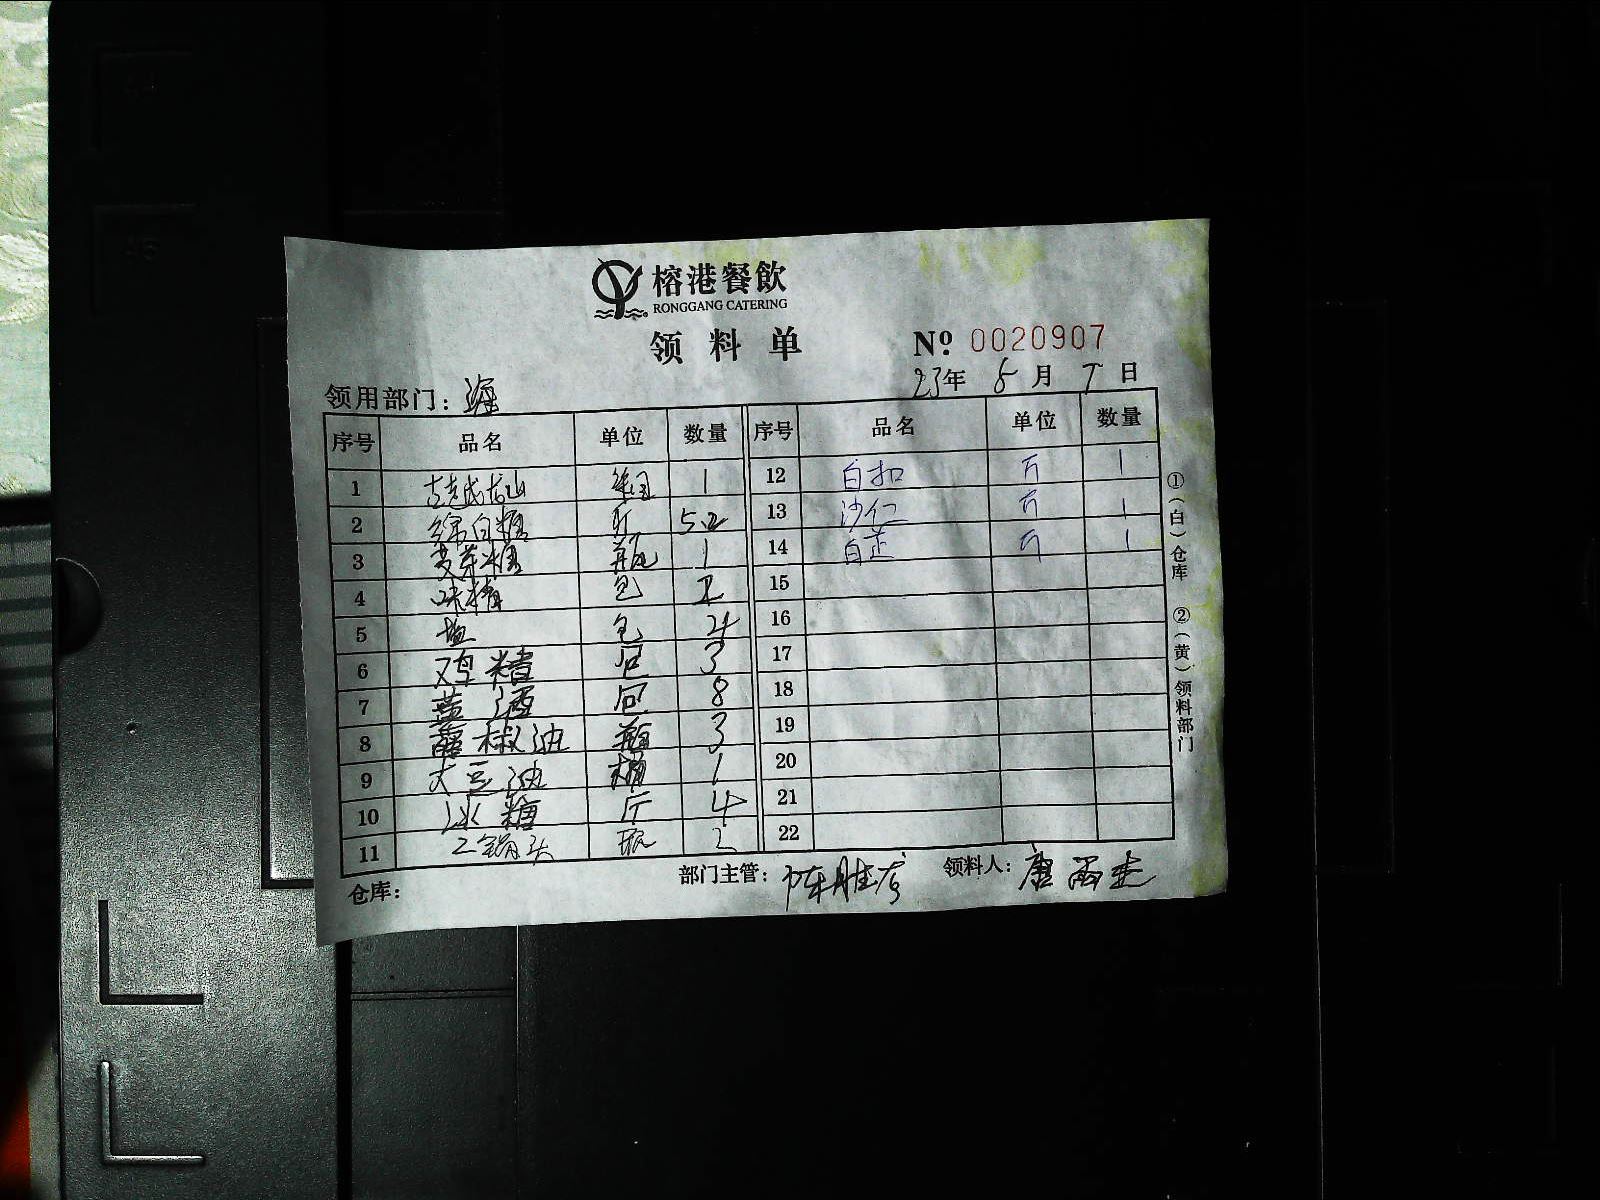 榕港餐飲
RONGGANG CATERING
领料单
Nº 0020907
23年 8月 7日
领用部门:
序号 品名 单位 数量 序号 品名 单位 数量
1 古越龙山 1 12 白扣 斤 1
2 绵白糖 斤 5 13 沙仁 斤 1
3 麦芽糖 瓶 1 14 白芷 斤 1
4 味精 包 15
5 盐 包 4 16
6 鸡精 包 3 17
7 包 8 18
8 椒油 瓶 3 19
9 大豆油 桶 1 20
10 冰糖 斤 4 21
11 二锅头 瓶 2 22
仓库: 部门主管: 陈胜 领料人: 唐
①(白)仓库 ②(黄)领料部门